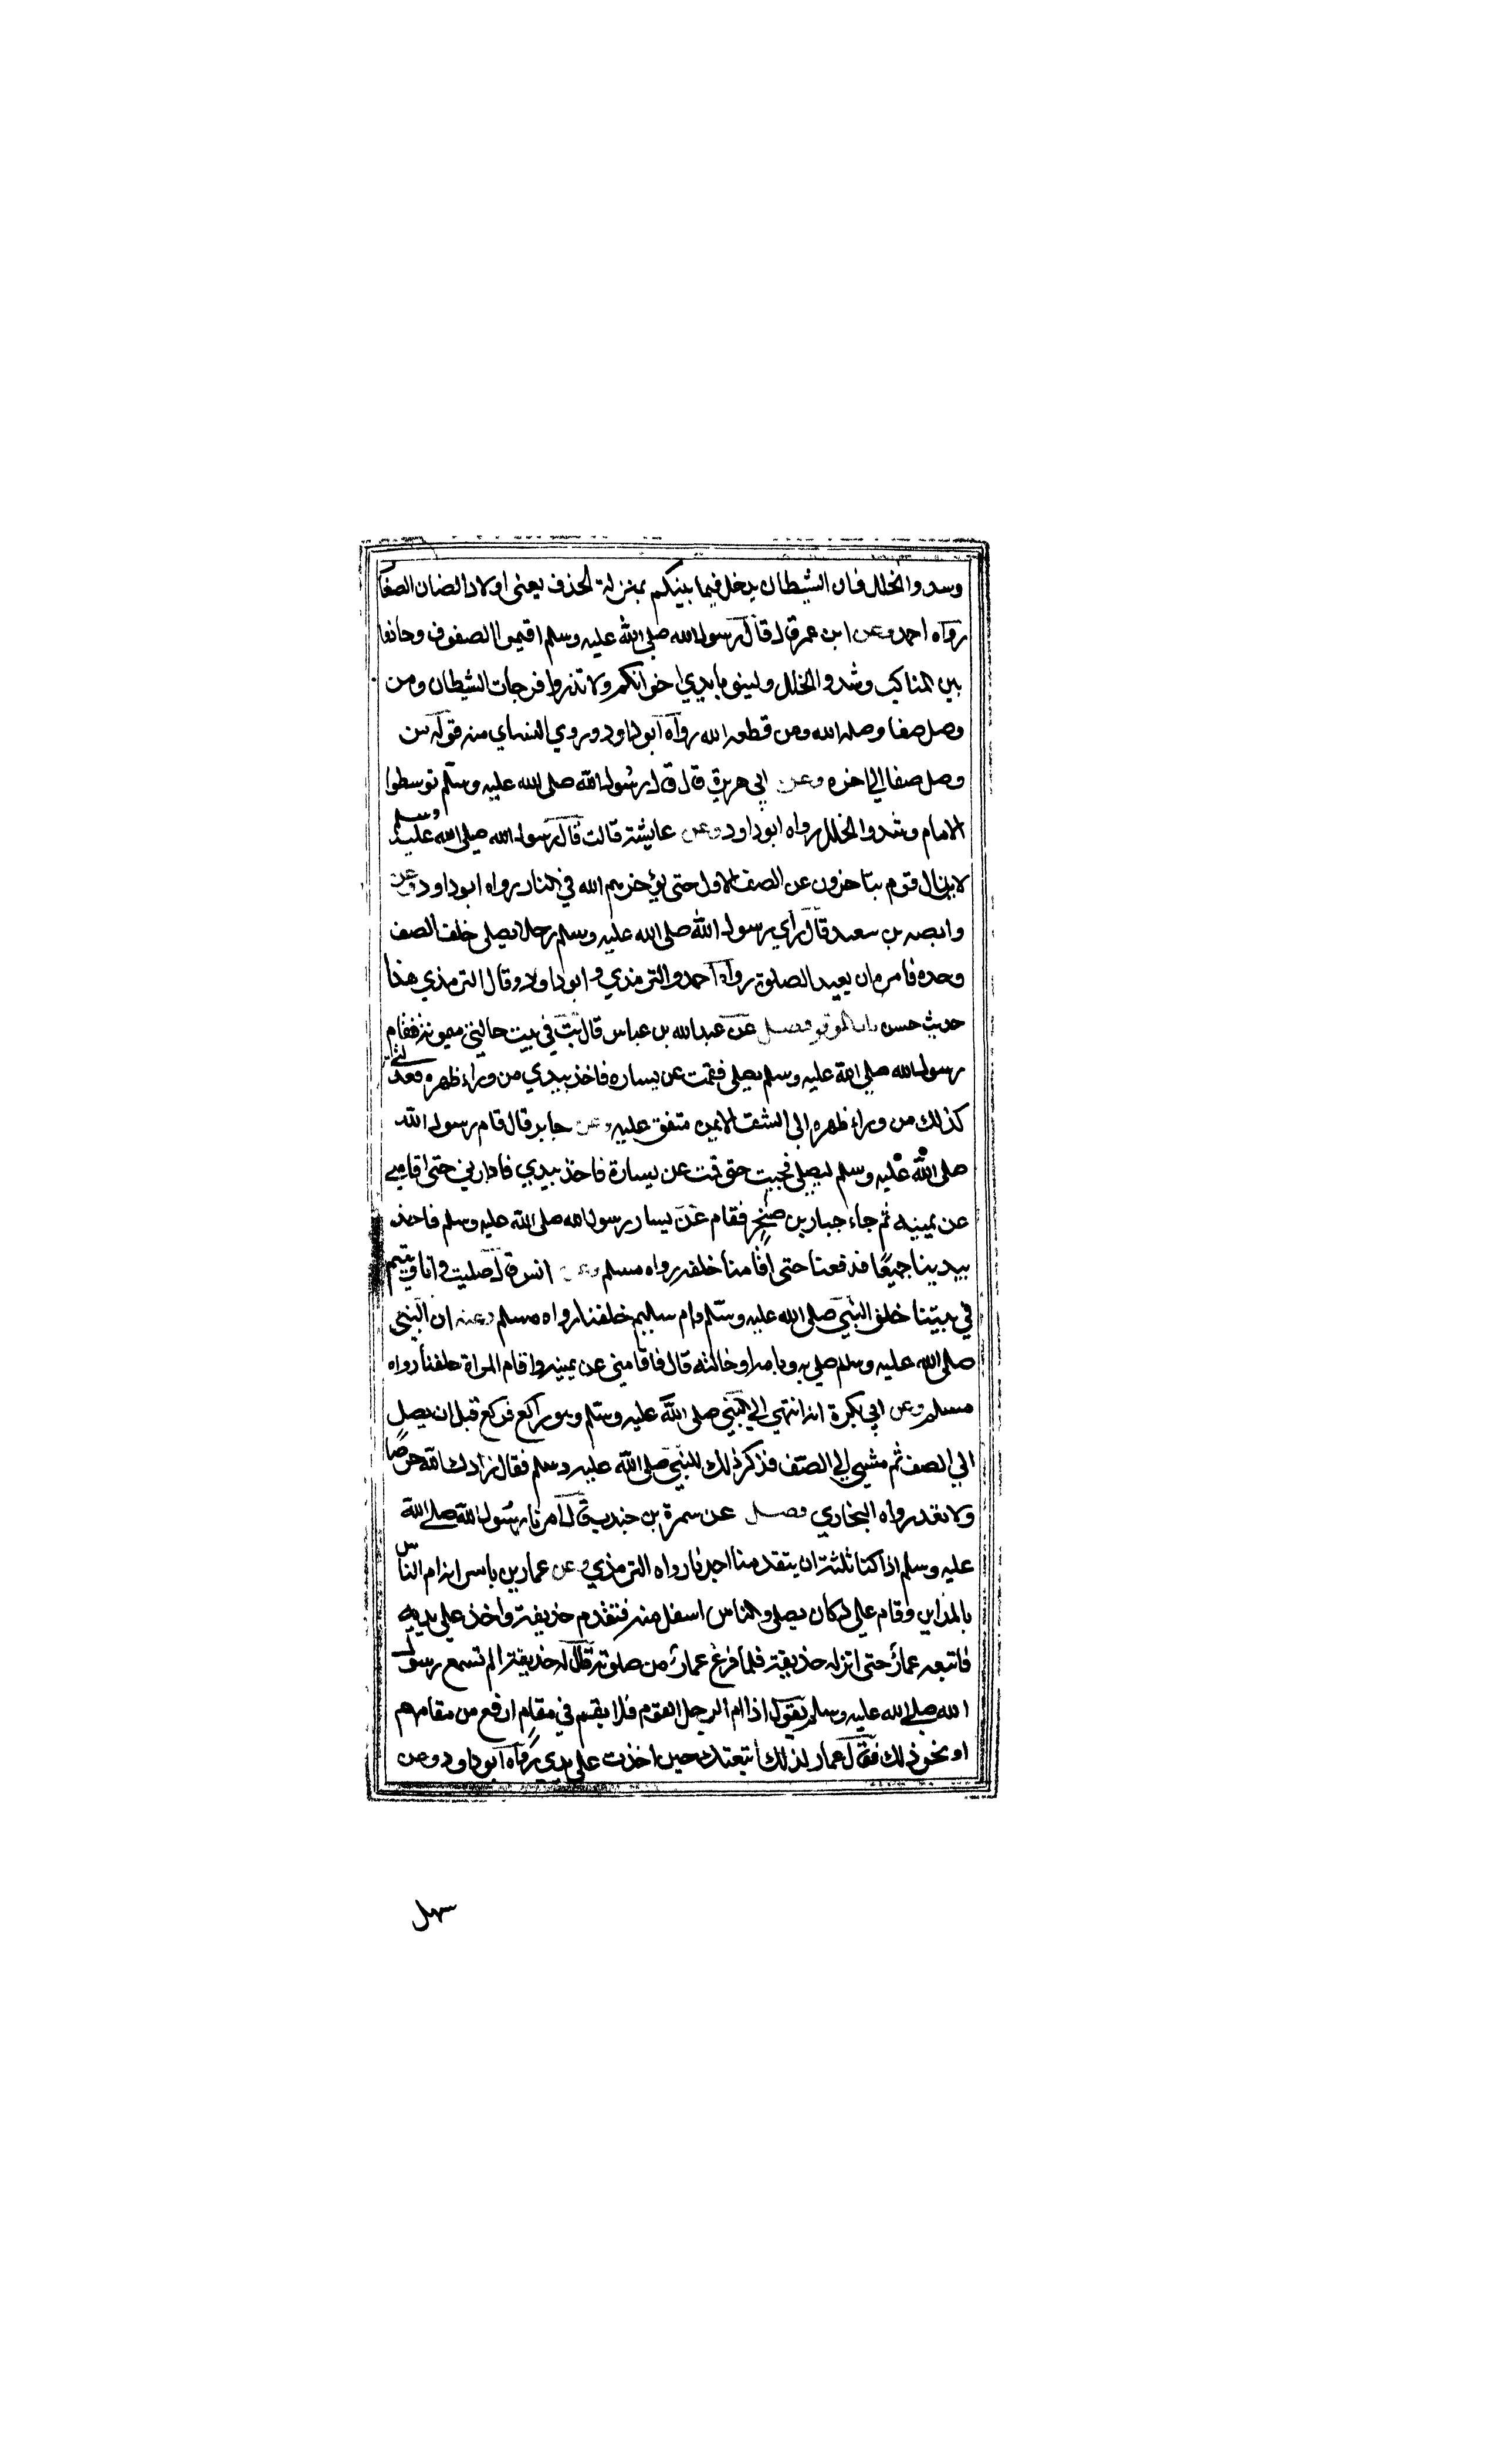 وسدوا الخلل فان الشيطان يدخل فيما بينكم بمنزلة الحذف يعنى اولاد الضان الصغا
رواه احمد وعن ابن عمر قال قال رسول الله صلى الله عليه وسلم اقيموا الصفوف وحاذوا
بين المناكب وشدوا الخلل ولينوا بايدي اخوانكم ولا تذروا فرجات الشيطان ومن
وصل صفا وصله الله ومن قطعه الله رواه ابو داود وروي النسائي منه قوله من
وصل صفا الى اخره وعن ابي هريرة قال قال رسول الله صلى الله عليه وسلم توسطوا
الامام وشدوا الخلل رواه ابو داود وعن عايشة قالت قال رسول الله صلى الله عليه وسلم
لا يزال قوم يتاخرون عن الصف الاول حتى يؤخرهم الله في النار رواه ابو داود وعن
وابصه بن سعيد قال راي رسول الله صلى الله عليه وسلم رجلا يصلى خلف الصف
وحده فامره ان يعيد الصلوة رواه احمد والترمذي وابو داود وقال الترمذي هذا
حديث حسن باب الموقف فصل عن عبدالله بن عباس قال بت في بيت خالتي ميمونة فقام
رسول الله صلى الله عليه وسلم يصلى فقمت عن يساره فاخذ بيدي من وراء ظهره فعدلني
كذلك من وراء ظهره الى الشق الايمن متفق عليه وعن جابر قال قام رسول الله
صلى الله عليه وسلم ليصلي فجيت حتى قمت عن يساره فاخذ بيدي فادارني حتى اقامني
عن يمينه ثم جاء جبار بن صخر فقام عن يسار رسول الله صلى الله عليه وسلم فاخذ
بيدينا جميعا فدفعنا حتى اقامنا خلفه رواه مسلم وعن انس قال صليت انا ويتيم
في بيتنا خلف النبي صلى الله عليه وسلم وام سليم خلفنا رواه مسلم وعنه ان النبي
صلى الله عليه وسلم صلي به وبامه او خالته قال فاقامني عن يمينه واقام المراة خلفنا رواه
مسلم وعن ابي بكرة انه انتهي الي النبي صلى الله عليه وسلم وهو راكع فركع قبل ان يصل
الي الصف ثم مشي الي الصف فذكر ذلك للنبي صلى الله عليه وسلم فقال زادك الله حرصا
ولا تعد رواه البخاري فصل عن سمرة بن جندب قال امرنا رسول الله صلى الله
عليه وسلم اذا كنا ثلثة ان يتقدمنا احدنا رواه الترمذي وعن عمار بن ياسر انه ام الناس
بالمداين وقام علي دكان يصلي والناس اسفل منه فتقدم حذيفة واخذ علي يديه
فاتبعه عمار حتى انزله حذيفة فلما فرغ عمار من صلوته قال له حذيفة الم تسمع رسول
الله صلى الله عليه وسلم يقول اذا ام الرجل القوم فلا يقم في مقام ارفع من مقامهم
او نحو ذلك فقال عمار لذلك اتبعتك حين اخذت على يدي رواه ابو داود وعن
سهل